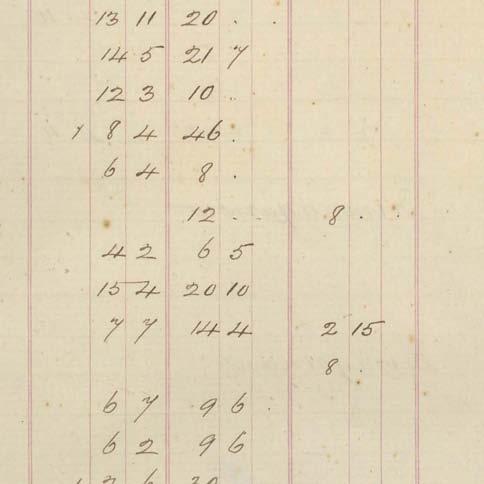 13 11 20 . .
14 5 21 7
12 3 10 ..
1 8 4 46 .
6 4 8 .
12 . . 8 . .
4 2 6 5
15 4 20 10
7 7 14 4 2 15
8 .
6 7 9 6 .
6 2 9 6